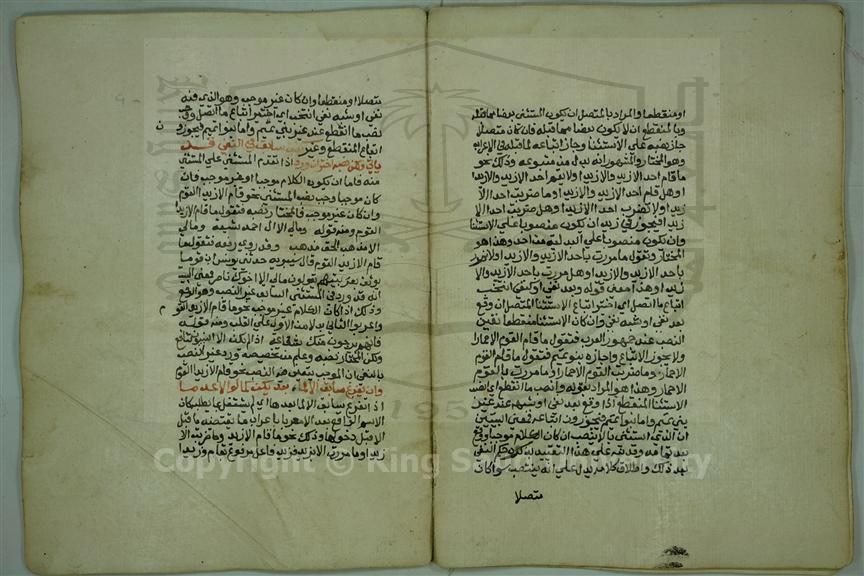 او منقطعا والمراد بالمتصل ان يكون المستثنى بعضا مما قبله
وبالمنقطع ان لا يكون بعضا مما قبله فان كان متصلا
جاز نصبه على الاستثنا وجاز اتباعه لما قبله في الاعراب
وهو المختار والمشهور انه بدل من متبوعه وذلك نحو
ما قام احد الا زيد والا زيدا ولا يقم احد الا زيد والا زيدا
او هل قام احد الا زيد والا زيدا او ما ضربت احدا الا
زيدا ولا تضرب احدا الا زيدا وهل ضربت احدا الا
زيدا فيجوز في زيد ان يكون منصوبا على الاستثنا
وان يكون منصوبا على البدلية من احد وهذا هو
المختار وتقول ما مررت باحد الا زيد والا زيدا ولا تمرر
باحد الا زيد والا زيدا وهل مررت باحد الا زيد والا
زيدا وهذا معنى قوله وبعد نفي او كنفي انتخب
اتباع ما اتصل اي اختر اتباع الاستثنا المتصل ان وقع
بعد نفي او شبه نفي وان كان الاستثنا منقطعا تعين
النصب عند جمهور العرب فتقول ما قام القوم الا حمارا
ولا يجوز الاتباع واجازه بنو تميم فتقول ما قام القوم
الا حمار وما ضربت القوم الا حمارا وما مررت بالقوم
الا حمار وهذا هو المراد بقوله وانصب ما انقطع اي انصب
الاستثنا المنقطع اذا وقع بعد نفي او شبهه عند غير
بني تميم واما بنو تميم فيجوزون اتباعه فمعنى البيتين
ان الذي استثني بالا ينتصب ان كان الكلام موجبا ووقع
بعد تمامه وقد نبه على هذا التقييد بذكره حكم النفي
بعد ذلك واطلاق كلامه يدل على انه ينتصب سوا كان
متصلا
متصلا او منقطعا وان كان غير موجب وهو الذي فيه
نفي او شبه نفي انتخب اي اختير اتباع ما اتصل ووجب
نصب ما انقطع عند غير بني تميم واما بنو تميم فيجوزون
اتباع المنقطع وغير نصب سابق في النفي قد
ياتي ولكن نصبه اختر ان ورد اذا تقدم المستثنى على المستثنى
منه فاما ان يكون الكلام موجبا او غير موجب فان
كان موجبا وجب نصب المستثنى نحو قام الا زيدا القوم
وان كان غير موجب فالمختار نصبه فتقول ما قام الا زيدا
القوم ومنه قوله وما لي الا ال احمد شيعة وما لي
الا مذهب الحق مذهب وقد روي رفعه فتقول ما
قام الا زيد القوم قال سيبويه حدثني يونس ان قوما
يوثق بعربيتهم يقولون ما لي الا اخوك ناصر فمعنى البيت
انه قد ورد في المستثنى السابق غير النصب وهو الرفع
وذلك اذا كان الكلام غير موجب نحو ما قام الا زيد القوم
واعربوا الثاني بدلا من الاول على القلب ومنه قوله
فانهم يرجون منك شفاعة اذا لم يكن الا النبيون شافع
ولكن المختار نصبه وعلم من تخصيصه ورود غير النصب
بالنفي ان الموجب يتعين فيه النصب نحو قام الا زيدا القوم
وان يفرغ سابق الا لما بعد يكن كما لو الا عدما
اذا تفرغ سابق الا لما بعدها اي لم يشتغل بما يطلبه كان
الاسم الواقع بعد الا معربا باعراب ما يقتضيه ما قبل
الا قبل دخولها وذلك نحو ما قام الا زيد وما ضربت الا
زيدا وما مررت الا بزيد فزيد فاعل مرفوع بقام وزيدا